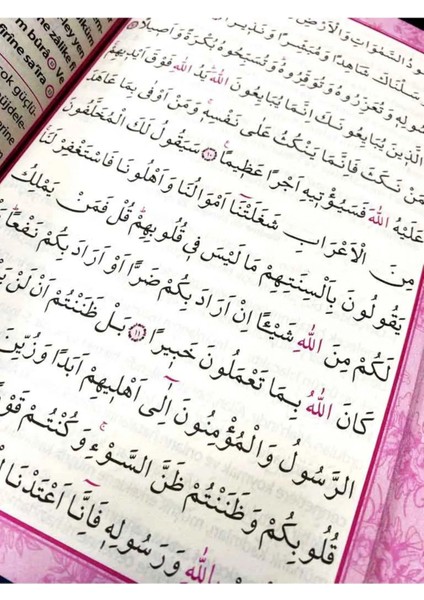 ley yen
ne zâlike fî
m bûrâ ⑫ Ve
rîne saîra ⑬
çok güçlü-
السَّمٰوَاتِ وَالْاَرْضِ
شَاهِدًا وَمُبَشِّرًا وَنَذِيرًا
وَتُعَزِّرُوهُ وَتُوَقِّرُوهُ وَتُسَبِّحُوهُ بُكْرَةً وَاَصِيلًا
الَّذِينَ يُبَايِعُونَكَ اِنَّمَا يُبَايِعُونَ اللّٰهَ يَدُ اللّٰهِ فَوْقَ اَيْدِيهِمْ
فَمَنْ نَكَثَ فَاِنَّمَا يَنْكُثُ عَلٰى نَفْسِهِ وَمَنْ اَوْفٰى بِمَا عَاهَدَ
عَلَيْهُ اللّٰهَ فَسَيُؤْتِيهِ اَجْرًا عَظِيمًا ١٠ سَيَقُولُ لَكَ الْمُخَلَّفُونَ
مِنَ الْاَعْرَابِ شَغَلَتْنَا اَمْوَالُنَا وَاَهْلُونَا فَاسْتَغْفِرْ لَنَا
يَقُولُونَ بِاَلْسِنَتِهِمْ مَا لَيْسَ فِي قُلُوبِهِمْ قُلْ فَمَنْ يَمْلِكُ
لَكُمْ مِنَ اللّٰهِ شَيْـًٔا اِنْ اَرَادَ بِكُمْ ضَرًّا اَوْ اَرَادَ بِكُمْ نَفْعًا
كَانَ اللّٰهُ بِمَا تَعْمَلُونَ خَبِيرًا ١١ بَلْ ظَنَنْتُمْ اَنْ لَنْ
الرَّسُولُ وَالْمُؤْمِنُونَ اِلٰٓى اَهْلِيهِمْ اَبَدًا وَزُيِّنَ
قُلُوبِكُمْ وَظَنَنْتُمْ ظَنَّ السَّوْءِ وَكُنْتُمْ قَوْ
اللّٰهِ وَرَسُولِهِ فَاِنَّٓا اَعْتَدْنَا